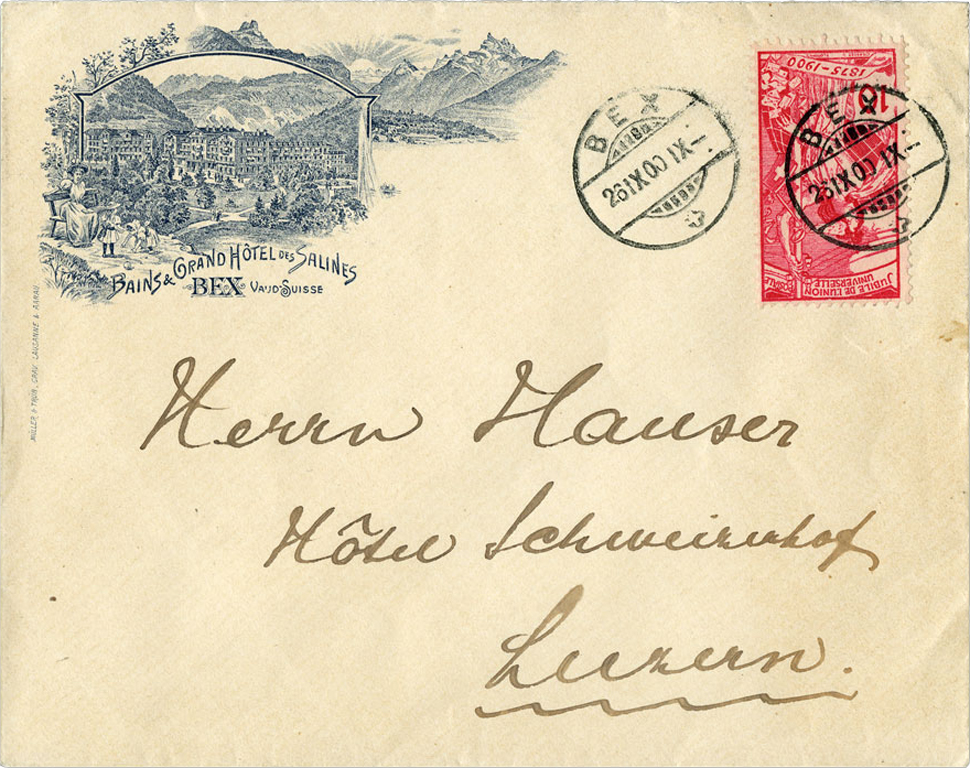 BAINS & GRAND HÔTEL DES SALINES
BEX VAUD SUISSE
MÜLLER & TRÜB, GRAV. LAUSANNE & AARAU
BEX
26 IX 00 IX-
1875-1900
10
BEX
26 IX 00 IX-
JUBILÉ DE L'UNION
UNIVERSELLE
Herrn Hauser
Hôtel Schweizerhof
Luzern.